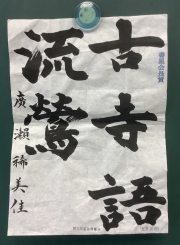 古寺語
流鶯
廣瀬稀美佳